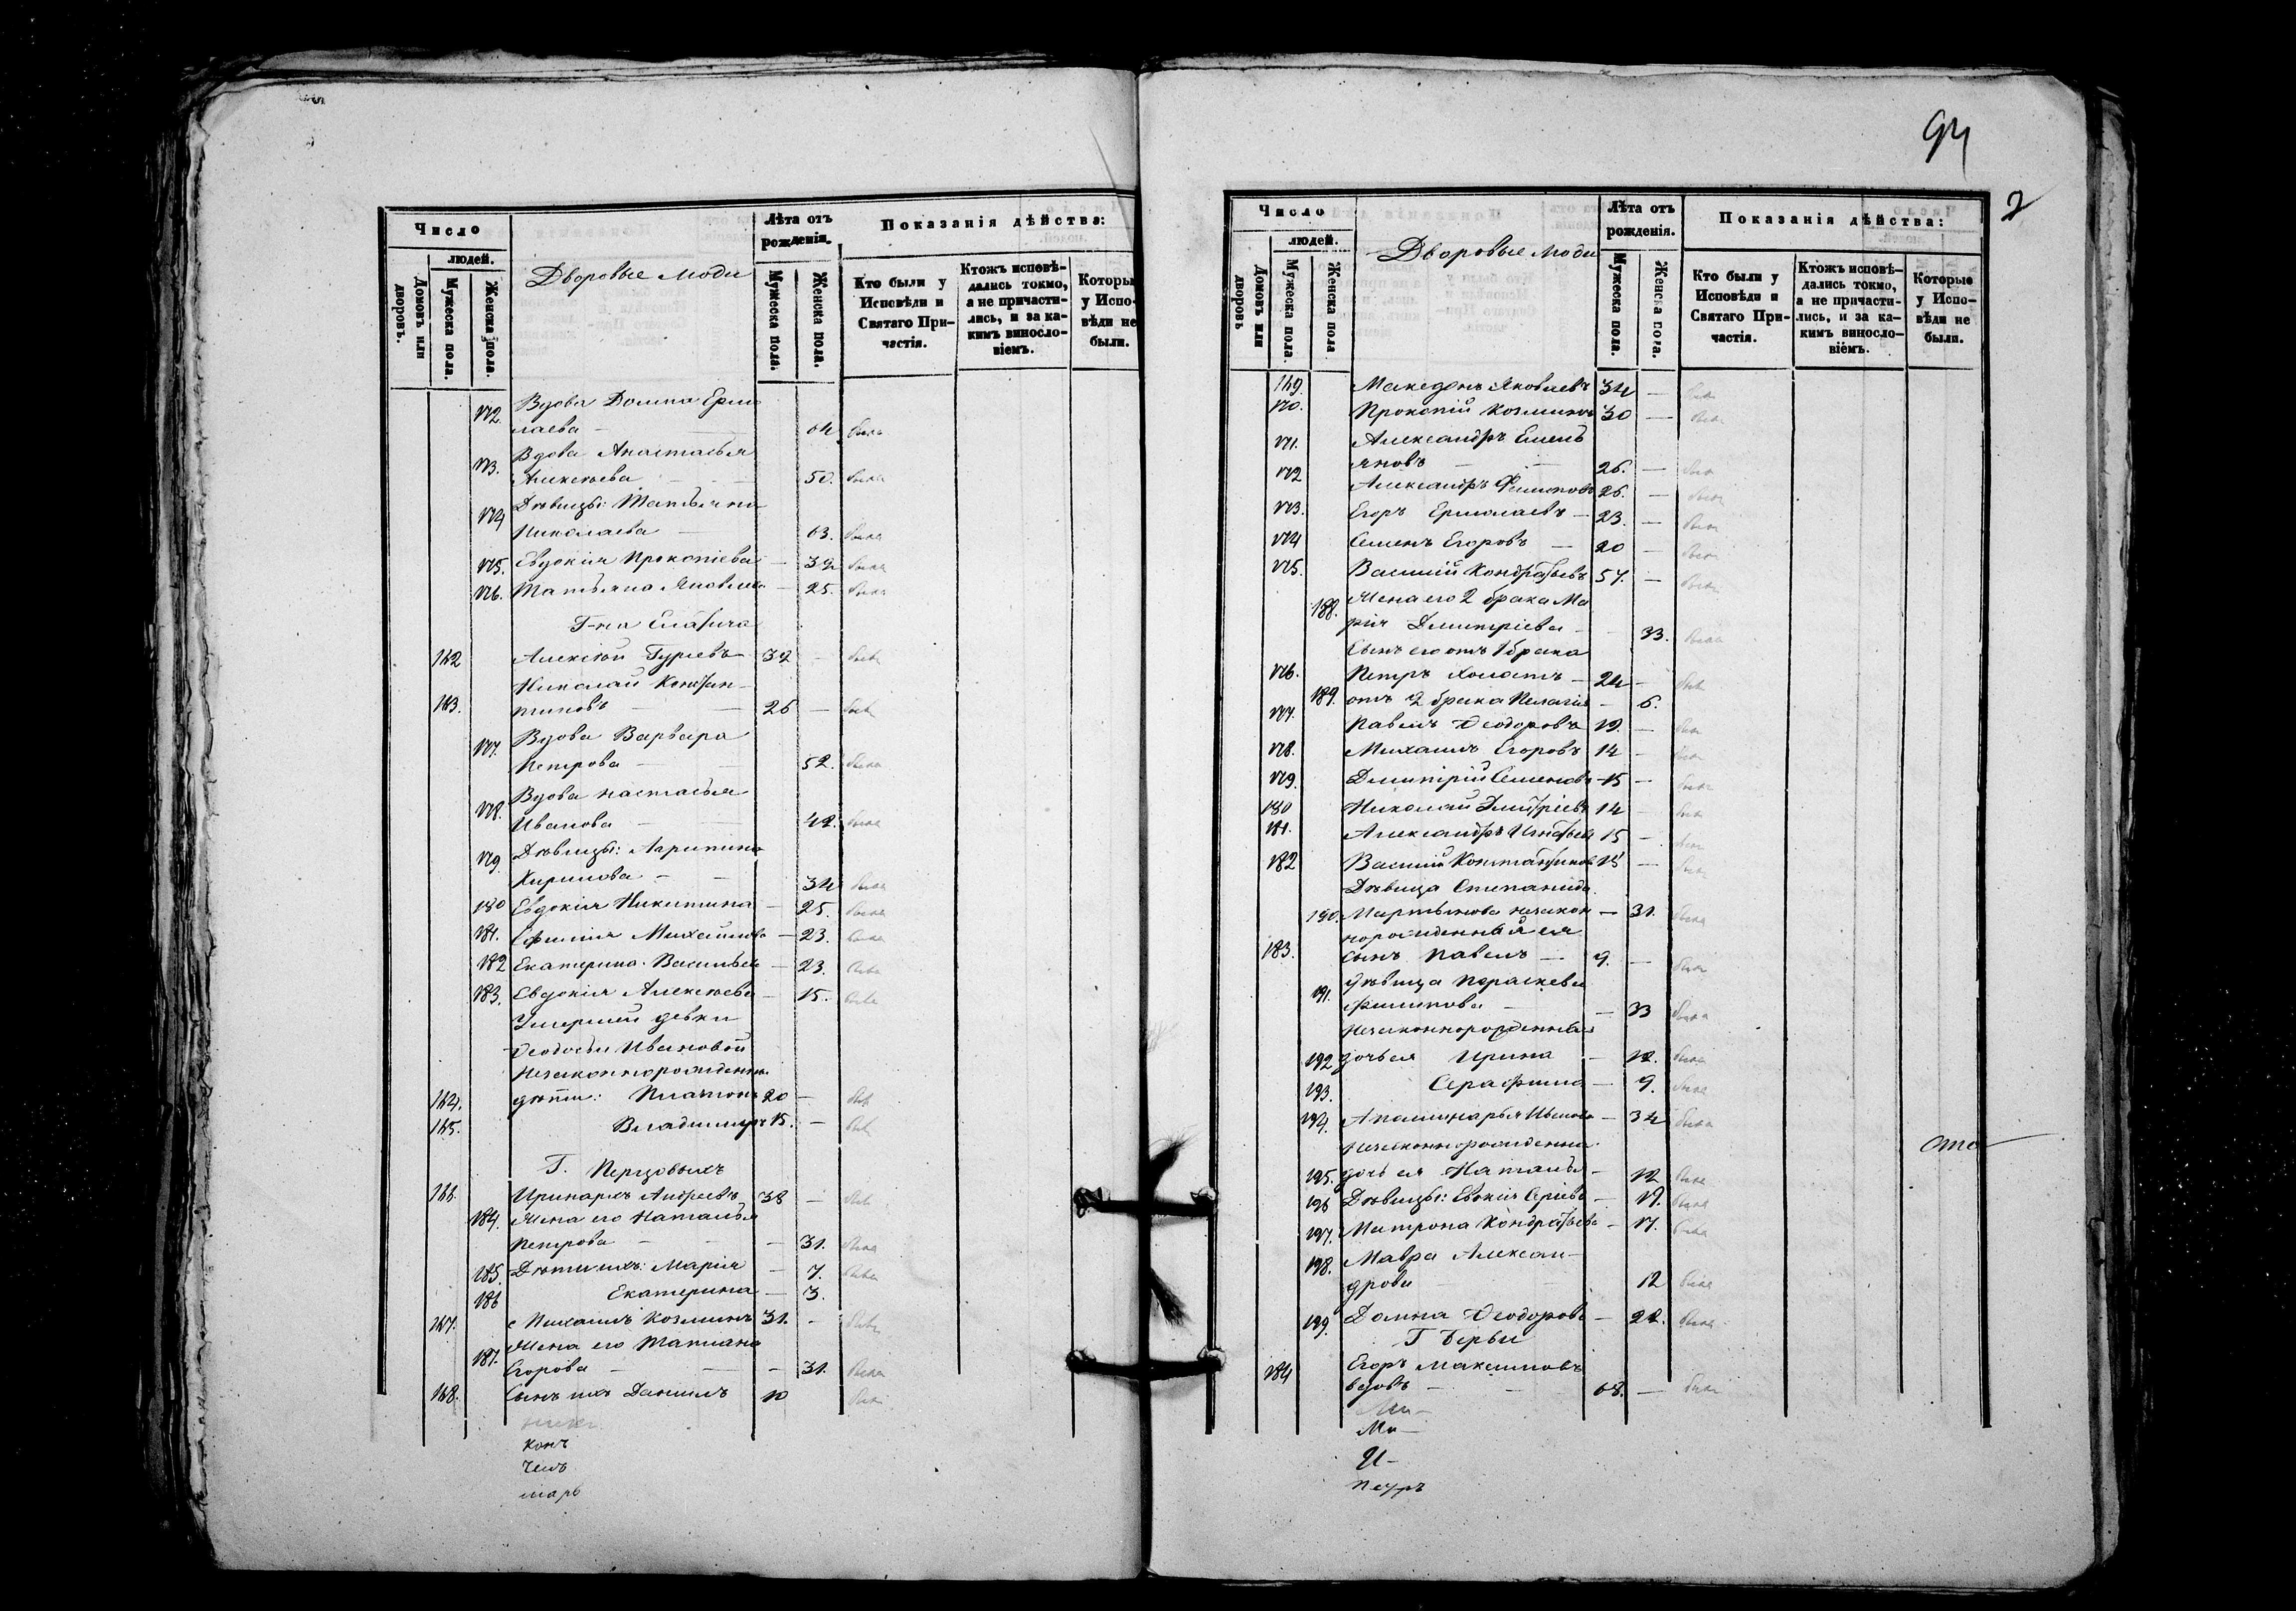 Число
людей.
Домовъ или дворовъ.
Мужеска пола.
Женска пола.
Дворовые люди
Лѣта отъ рожденія.
Мужеска пола.
Женска пола.
Показанія дѣйства:
Кто были у Исповѣди и Святаго Причастія.
Ктожъ исповѣдались токмо, а не причастились, и за какимъ винословіемъ.
Которые у Исповѣди не были.
172. Вдова Домна Ермо
лаева — 64 была
173. Вдова Анастасья
Алексѣева — 50. была
174 Дѣвицы: Татьяна
Николаева — 63. была
175. Евдокія Прокопіева — 32 была
176. Татьяна Яковлева — 25. была
Г-на Елагича
162 Алексѣй Гурьевъ 32 — былъ
Николай Констан-
163. тиновъ — 26 — былъ
177. Вдова Варвара
Петрова — 52. была
178. Вдова Настасья
Иванова — 42. была
179. Дѣвицы: Агрипина
Кирилова — 34 была
180 Евдокія Никитина — 25. была
181. Ефимія Михайлова — 23. была
182 Екатерина Васильева — 23. была
183. Евдокія Алексѣева — 15. была
Умершей девки
Ѳеодосьи Ивановой
Незаконнорожденные
164. дѣти: Платонъ 20 — былъ
165. Владимиръ 15. — былъ
Г. Перцовыхъ
166. Иринархъ Андреевъ 38 — былъ
184. Жена его Наталья
Петрова — 31. была
185. Дѣти ихъ: Марія — 7. была
186 Екатерина — 3.
167. Михаилъ Козминъ 31. — былъ
187. Жена его Татиана
Егорова — 31. была
168. Сынъ ихъ Данилъ 10 былъ
94
2
Число
людей.
Домовъ или дворовъ
Мужеска пола.
Женска пола
Дворовые люди
Лѣта отъ рожденія.
Мужеска пола.
Женска пола.
Показанія дѣйства:
Кто были у Исповѣди и Святаго Причастія.
Ктожъ исповѣдались токмо, а не причастились, и за какимъ винословіемъ.
Которые у Исповѣди не были.
169. Македонъ Яковлевъ 34 — былъ
170. Прокопій Козминъ 30 — былъ
171. Александръ Емель
яновъ — 26. — былъ
172 Александръ Филиповъ 26. — былъ
173. Егоръ Ермолаевъ — 23. — былъ
174 Семенъ Егоровъ — 20 — былъ
175. Василій Кондратьевъ 57. — былъ
188. Жена его 2 брака Ма
рія Димитріева — 33. была
Сынъ его отъ 1 брака
176. Петръ холостъ — 24 — былъ
189. отъ 2 брака Пелагія — 6.
177. Павелъ Ѳеодоровъ 19. — былъ
178. Михаилъ Егоровъ 14 — былъ
179. Димитрій Семеновъ 15 — былъ
180 Николай Дмитріевъ 14 былъ
181. Александръ Игнатьевъ 15 — былъ
182 Василій Константиновъ 15 — былъ
Дѣвица Степанида
190. Мартынова незакон — 31. была
норожденный ея
183. сынъ Павелъ — 9. — былъ
191. дѣвица Параскева
Филипова — 33 была
Незаконнорожденныя
192 дочь ея Ирина — 12. была
193. Серафима — 9. была
194. Апалинарья Иванова — 34 была
Незаконнорожденна
195. дочь ея Наталья — 12 была
196 Дѣвицы: Евокія Сергіева — 19. была
197. Матрона Кондратьева — 17. была
198. Мавра Алексан-
дрова — 12 была
199. Домна Ѳеодорова — 22. была
Г Берви
184 Егоръ Максимовъ
вдовъ — 68. — былъ
конъ
Ми—
И—
Петръ